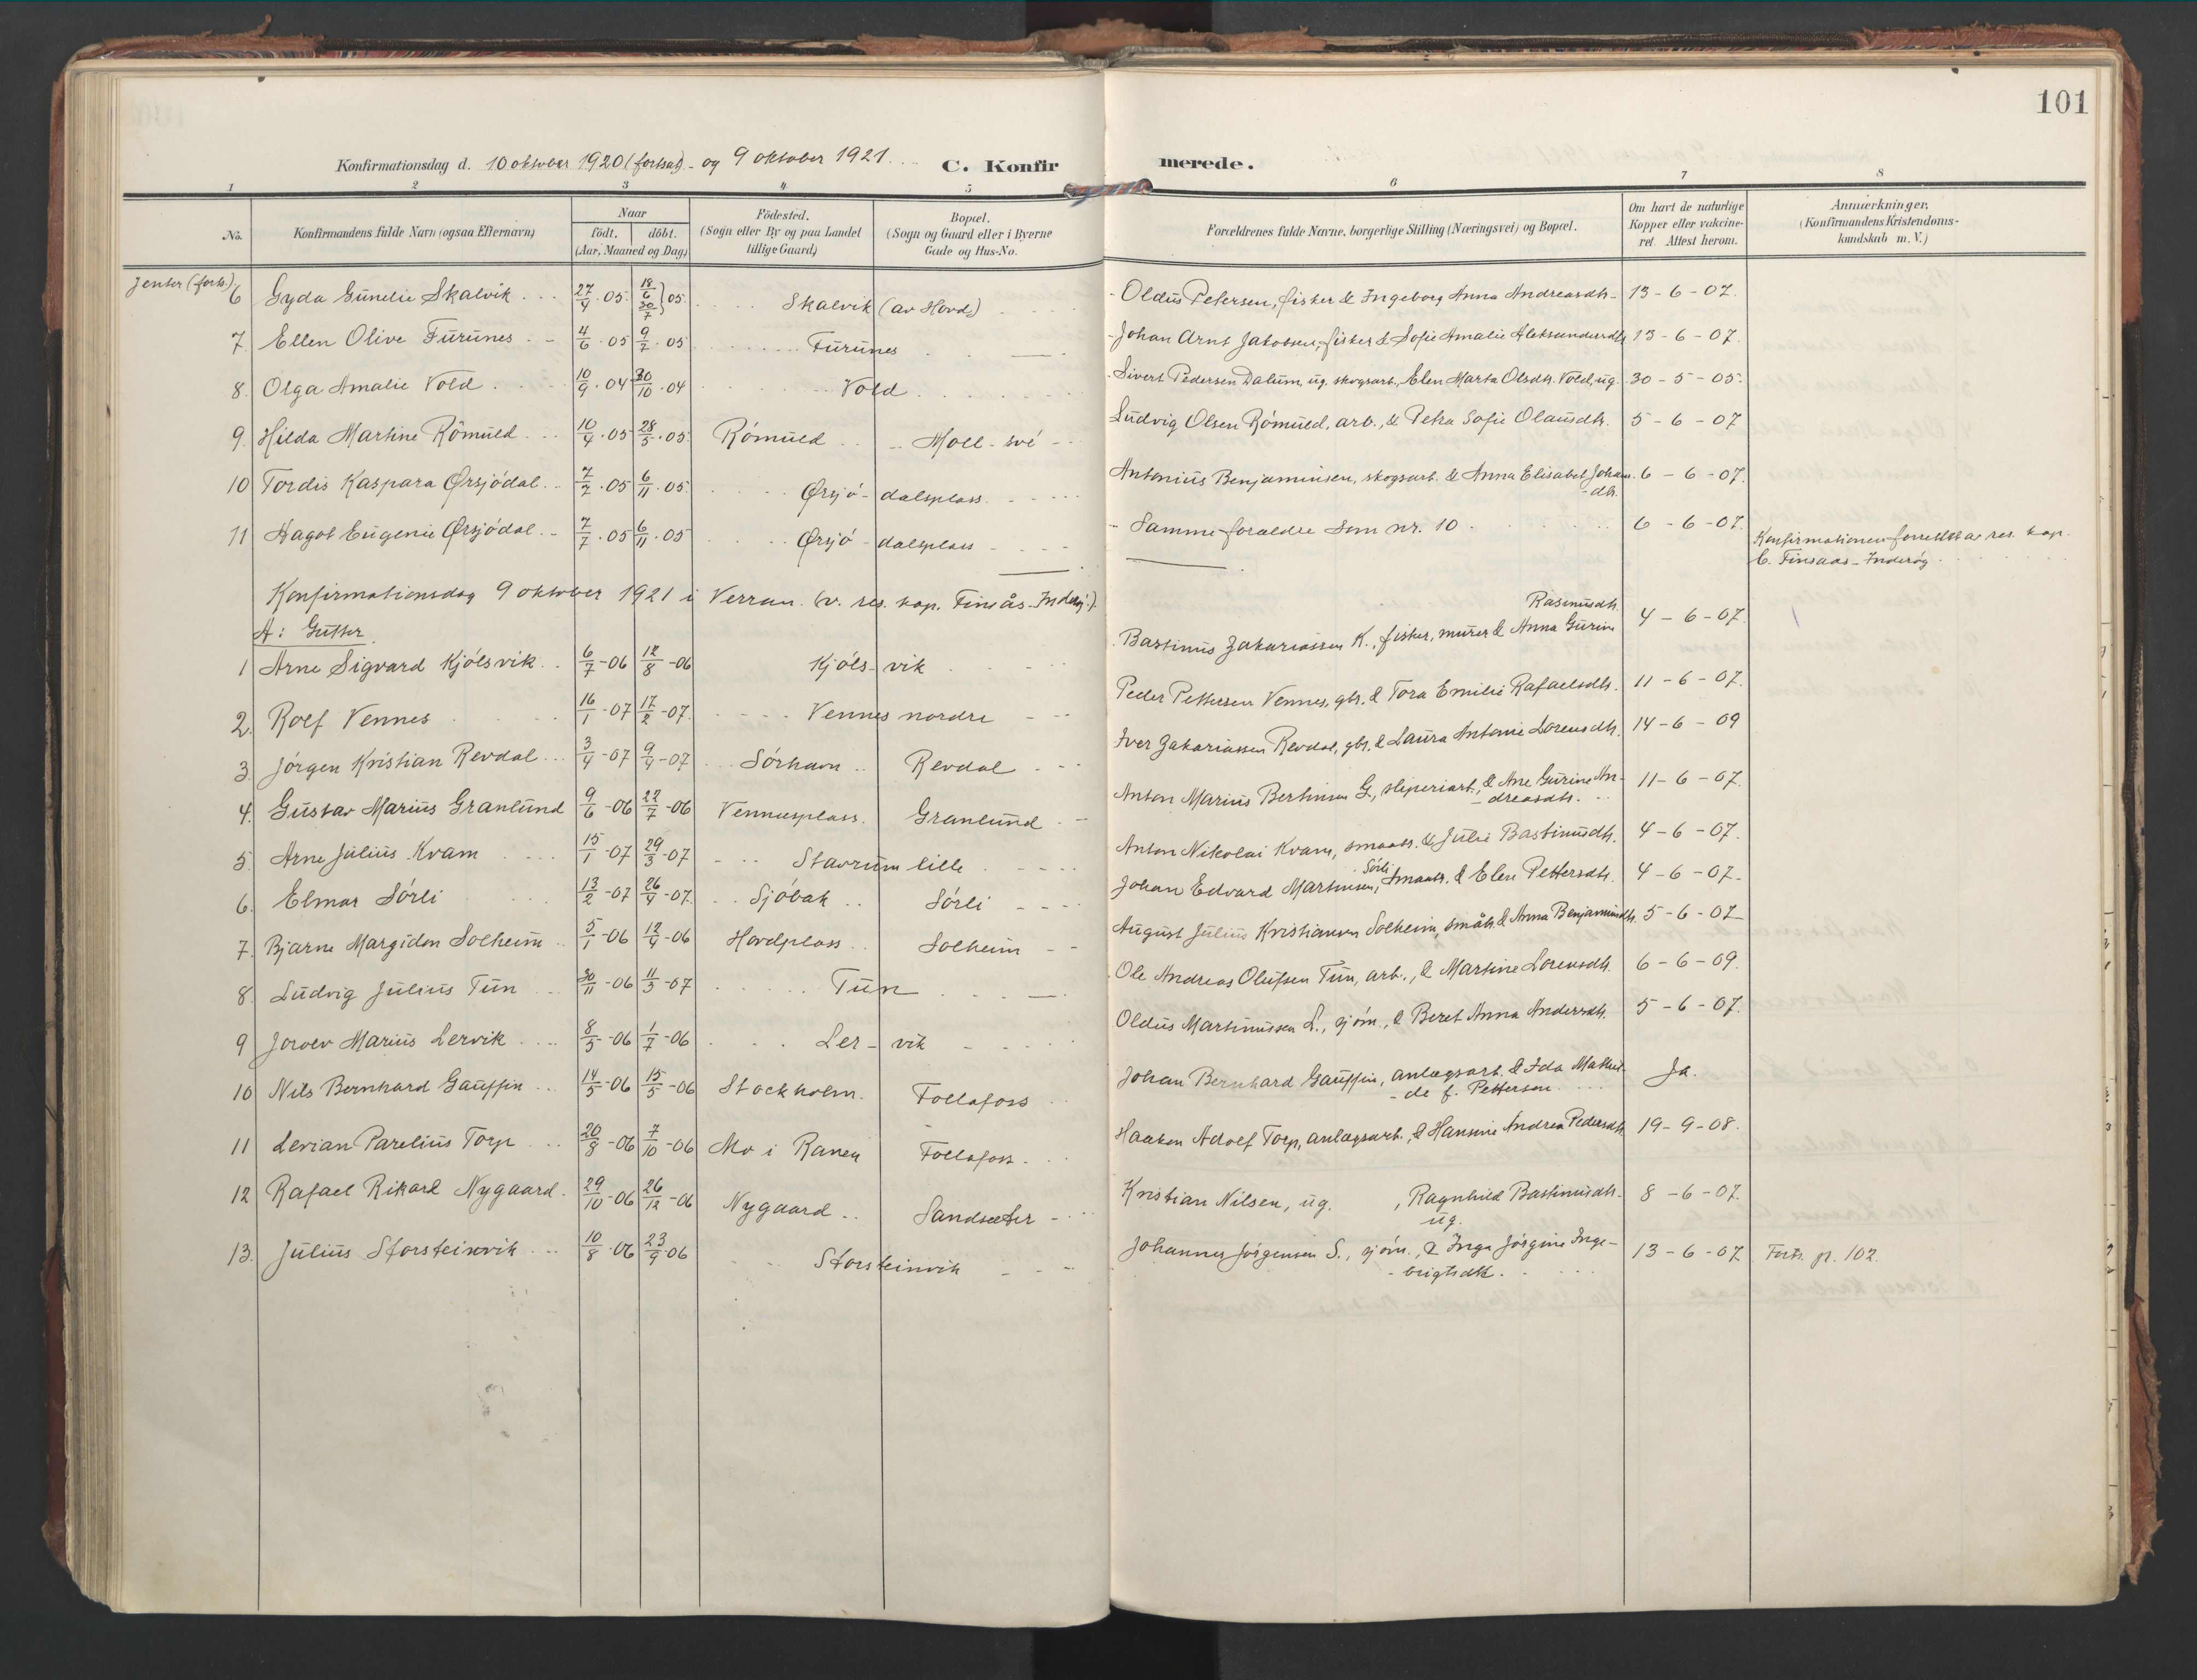 101
Konfirmationsdag d. 10 oktober 1920 (fortsat) - og 9 oktober 1921 C. Konfirmerede.
1 2 3 4 5 6 7 8
No. Konfirmandens fulde Navn (ogsaa Efternavn) Naar födt, döbt. (Aar, Maaned og Dag) Födested. (Sogn eller By og paa Landet tillige Gaard) Bopæl. (Sogn og Gaard eller i Byerne Gade og Hus-No. Forældrenes fulde Navne, borgerlige Stilling (Næringsvei) og Bopæl. Om havt de naturlige Kopper eller vakcineret. Attest herom. Anmærkninger, (Konfirmandens Kristendomskundskab m. V.)
Jenter (forts.)
6 Gyda Gunelie Skalvik 27/4 . 05. 18/6 30/7 } 05. Skalvik (av Hovd) Oldus Petersen, fisker & Ingeborg Anna Andreasdtr. 13 - 6 - 07.
7. Ellen Olive Furunes 4/6 . 05 9/7 . 05 Furunes Johan Arnt Jakobsen, fisker & Sofie Amalie Aleksandersdtr. 13 - 6 - 07.
8. Olga Amalie Vold 10/9 . 04 30/10 . 04 Vold Sivert Pedersen Dalum, ug. skogsarb., Elen Marta Olsdtr. Vold, ug. 30 - 5 - 05.
9. Hilda Martine Römuld 10/4 . 05 28/5 . 05. Römuld Moll - své Ludvig Olsen Römuld, arb., & Petra Sofie Olausdtr. 5 - 6 - 07
10 Tordis Kaspara Ørsjödal 7/7 . 05 6/11 . 05. Ørsjö - dalsplass. Antonius Benjaminsen, skogsarb. & Anna Elisabet Johans- 6 - 6 - 07.
- dtr.
11 Dagot Eugenie Ørsjödal 7/7 . 05 6/11 . 05 Ørsjö - dalsplass Samme foraeldre som nr. 10 6 - 6 - 07.
Konfirmationen forrettet av res. kap.
C. Finsaas - Inderøy
Konfirmationsdag 9 oktober 1921 i Verran. (v. res. kap. Finsås - Inderöy.)
A: Gutter
Rasmusdtr.
1 Arne Sigvard Kjölsvik 6/7 - 06 12/8 - 06 Kjöls - vik Bastinus Zakariassen K., fisker, murer & Anna Gurine 4 - 6 - 07.
2. Rolf Vennes 16/1 - 07 17/2 - 07. Vennes nordre Peder Pettersen Vennes, gbr. & Tora Emilie Rafaelsdtr. 11 - 6 - 07.
3. Jörgen Kristian Revdal 3/4 - 07 9/4 - 07 Sörhavn Revdal Iver Zakariassen Revdal, gbr. & Laura Antonie Lorensdtr. 14 - 6 - 09
4. Gustav Marius Granlund 9/6 - 06 22/7 - 06 Vennesplass. Granlund Anton Marius Bertinsen G., sliperiarb., & Ane Gurine An- 11 - 6 - 07.
- dreasdtr.
5 Arne Julius Kvam 15/1 - 07 29/3 - 07 Stavrum lille Anton Nikolai Kvam, smaabr. & Julie Bastinusdtr. 4 - 6 - 07.
Sörli
6. Elmar Sörli 13/2 - 07 26/4 - 07. Sjöbak Sörli Johan Edvard Martinsen, Smaabr. & Elen Pettersdtr. 4 - 6 - 07.
7. Bjarne Margidon Solheim 5/1 - 06 12/4 - 06 Hovdplass Solheim August Julius Kristiansen Solheim, småb. & Anna Benjaminsdtr. 5 - 6 - 07
8. Ludvig Julius Tun 30/11 - 06 11/3 - 07 Tun Ole Andreas Olufsen Tun, arb., & Martine Lorensdtr. 6 - 6 - 09.
9 Jorolv Marius Lervik 8/5 - 06 1/7 - 06 Ler - vik Oldus Martinussen L., sjöm., & Beret Anna Andersdtr. 5 - 6 - 07.
10 Nils Bernhard Gauffin 14/5 - 06 15/5 - 06 Stockholm. Follafoss Johan Bernhard Gauffin, anlægsarb. & Ida Mathil- Ja.
- de f. Petterson
11 Levian Parelius Torp 20/8 - 06 7/10 - 06 Mo i Ranen Follafoss Haakon Adolf Torp, anlægsarb., & Hansine Andrea Pedersdtr. 19 - 9 - 08.
12 Rafael Rikard Nygaard 29/10 - 06 26/12 - 06 Nygaard Sandsæter Kristian Nilsen, ug. , Ragnhild Bastinusdtr. 8 - 6 - 07.
ug.
13. Julius Storsteinvik 10/8 . 06 23/9 . 06 Storsteinvik Johannes Jörgensen S., sjöm., & Inga Jörgine Inge- 13 - 6 - 07 Forts. p. 102
- brigtsdtr.